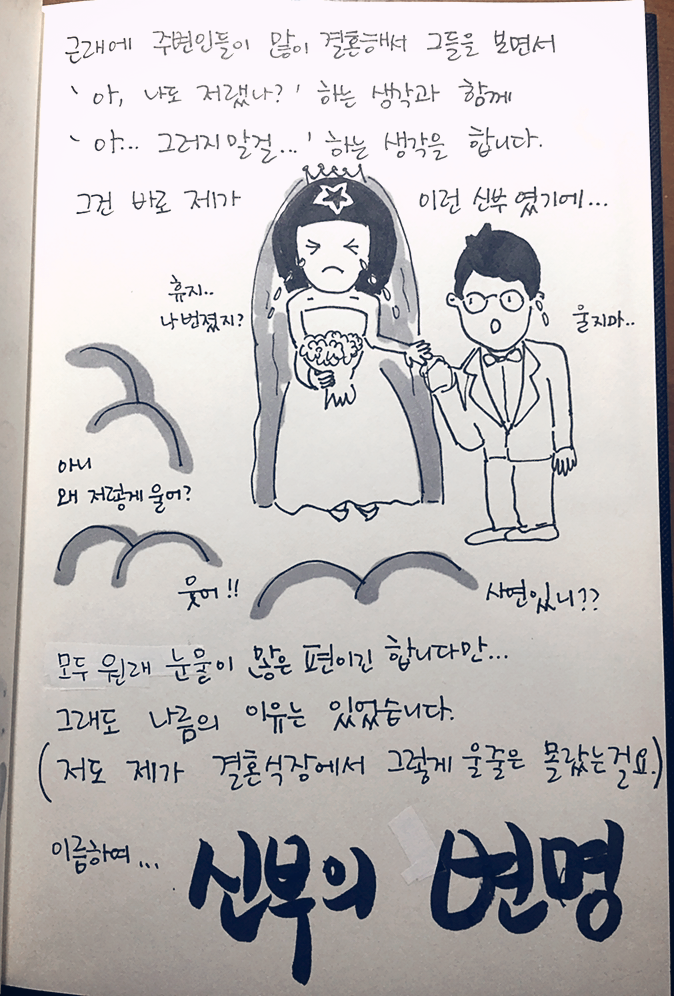 근래에 주변인들이 많이 결혼해서 그들을 보면서
'아, 나도 저랬나?' 하는 생각과 함께
'아... 그러지말걸...' 하는 생각을 합니다.
그건 바로 제가 이런 신부였기에...
휴지..
나 번졌지?
울지마..
아니
왜 저렇게 울어?
웃어!!
사연있니??
모두 원래 눈물이 많은 편이긴 합니다만...
그래도 나름의 이유는 있었습니다.
(저도 제가 결혼식장에서 그렇게 울줄은 몰랐는걸요.)
이름하여... 신부의 변명